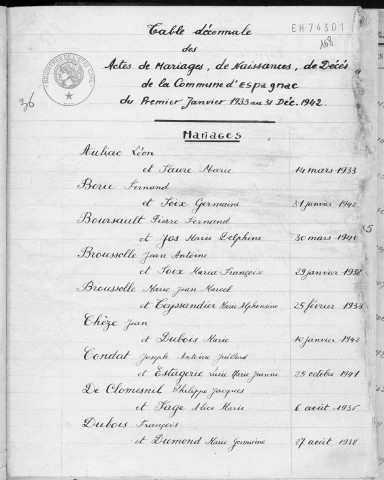 EH74301
168
36
Table décennale
des
Actes de Mariages, de Naissances, de Décés
de la Commune d'Espagnac
du Premier Janvier 1933 au 31 Déc. 1942.
Mariages
Auliac Léon
et Faure Marie 14 mars 1933
Borie Fernand
et Foix Germaine 31 janvier 1942
Boursault Pierre Fernand
et Jos Marie Delphine 30 mars 1940
Broussolle Jean Antoine
et Foix Marie Françoise 29 janvier 1938
Broussolle Marie Jean Marcel
et Ceyssandier Marie Alphonsine 25 février 1933
Chèze Jean
et Dubois Marie 10 janvier 1942
Condat Joseph Antoine
et Estagerie Lucie Marie Jeanne 25 octobre 1941
De Clomesnil Philippe Jacques
et Sage Alice Marie 6 août 1935
Dubois François
et Dumond Marie Germaine 27 août 1938